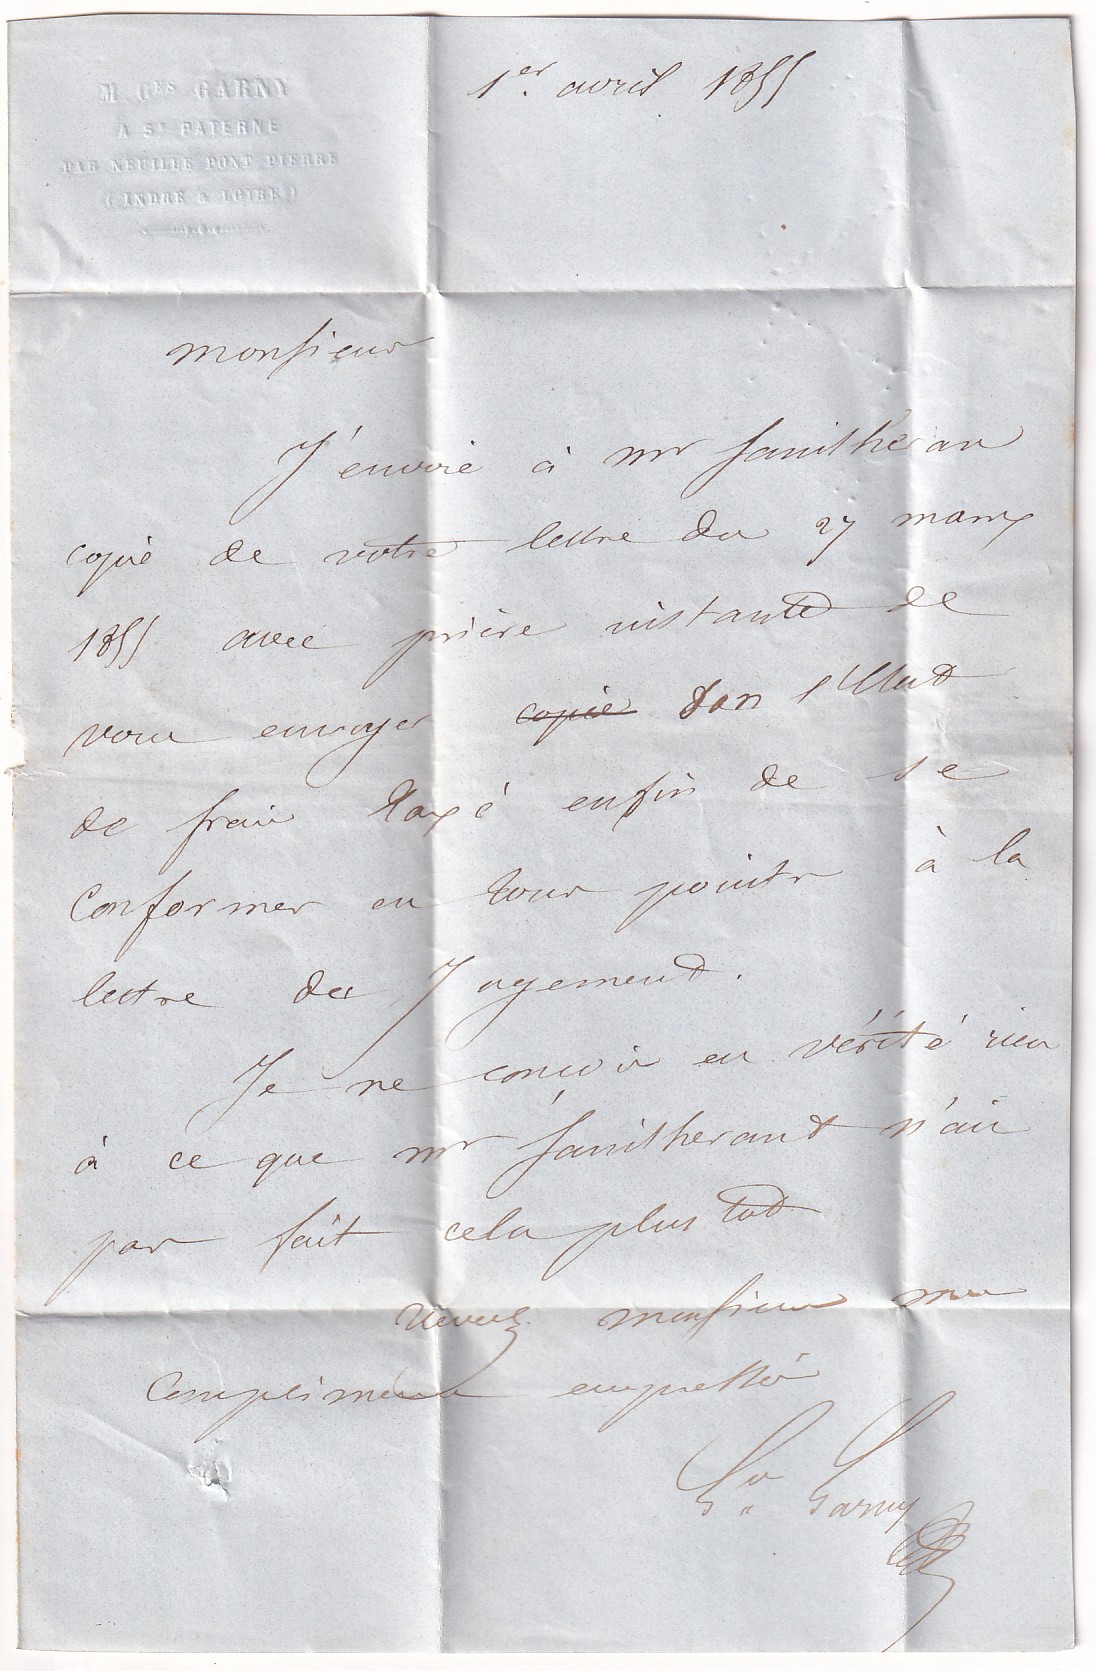 M Ges GARNY
A St PATERNE
PAR NEUILLÉ PONT PIERRE
(INDRE & LOIRE)
1er avril 1855
monsieur
J'envoie à mr
copie de votre lettre du 27 mars
1855 avec prière instante de
vous envoyer copie d'un l'état
de frais taxé enfin de se
conformer en tous points à la
lettre du Jugement.
Je ne conçois en vérité rien
à ce que mr n'ait
pas fait cela plus tot
recevez monsieur mes
compliments empressés
Garny